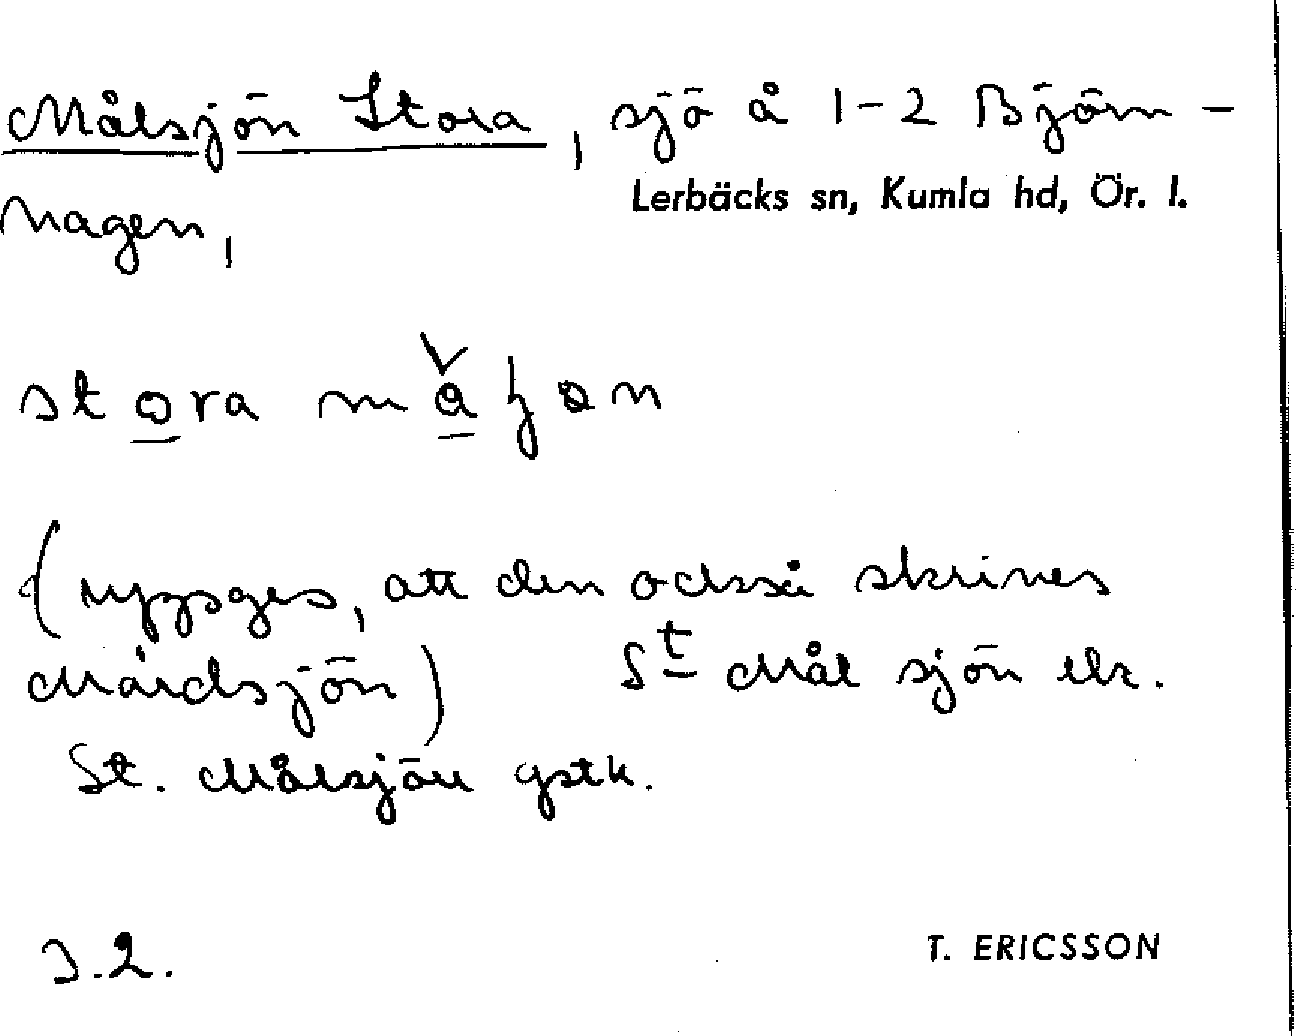 Målsjön Stora, sjö å 1-2 Björn-
Lerbäcks sn, Kumla hd, Ör. l.
hagen,
stora
(uppges, att den också skrives
Mårdsjön)
St Mål sjön ek.
St. Målsjön gstk.
J.2.
T. ERICSSON